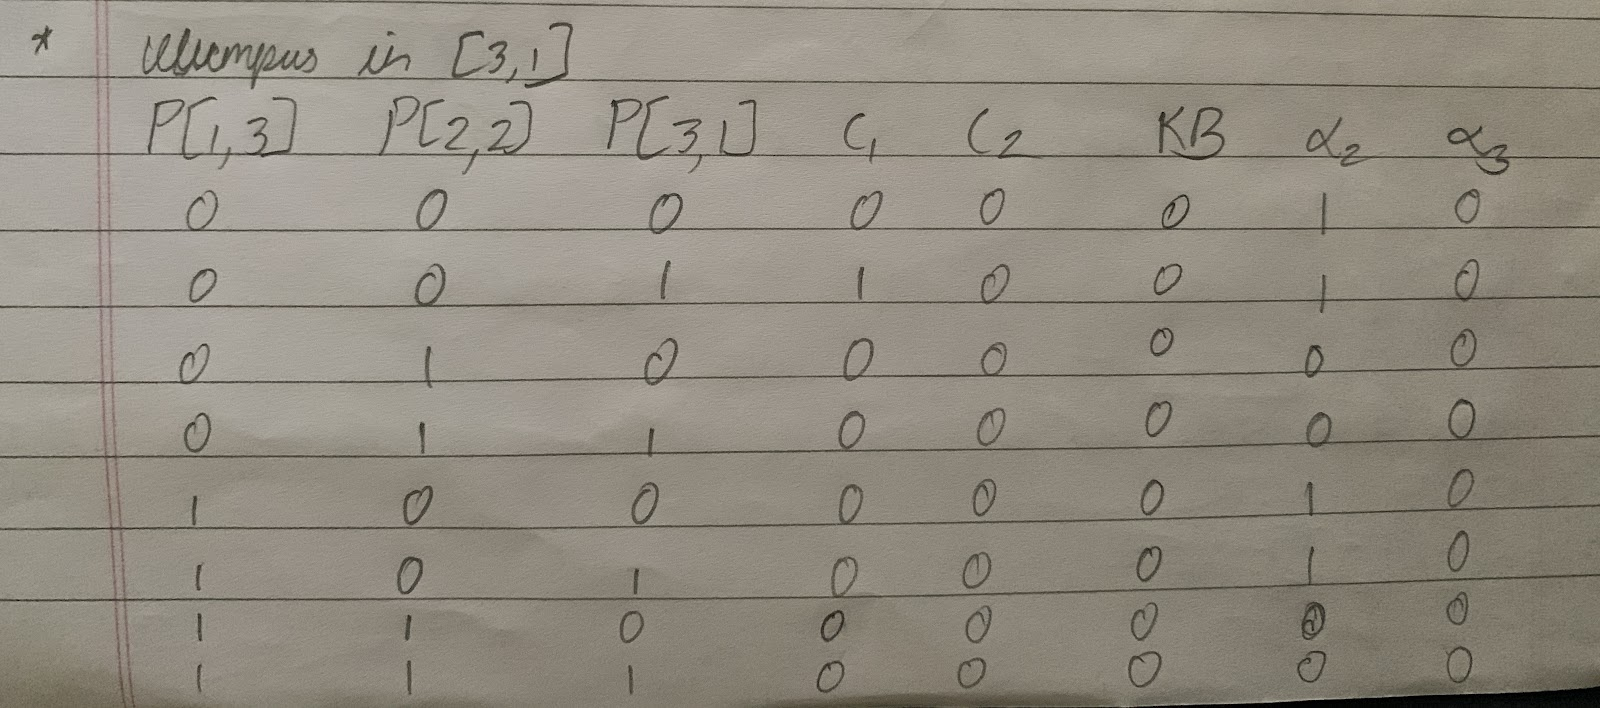 * Wumpus in [3,1]
P[1,3] P[2,2] P[3,1] C₁ C₂ KB α₂ α₃
0 0 0 0 0 0 1 0
0 0 1 1 0 0 1 0
0 1 0 0 0 0 0 0
0 1 1 0 0 0 0 0
1 0 0 0 0 0 1 0
1 0 1 0 0 0 1 0
1 1 0 0 0 0 0 0
1 1 1 0 0 0 0 0